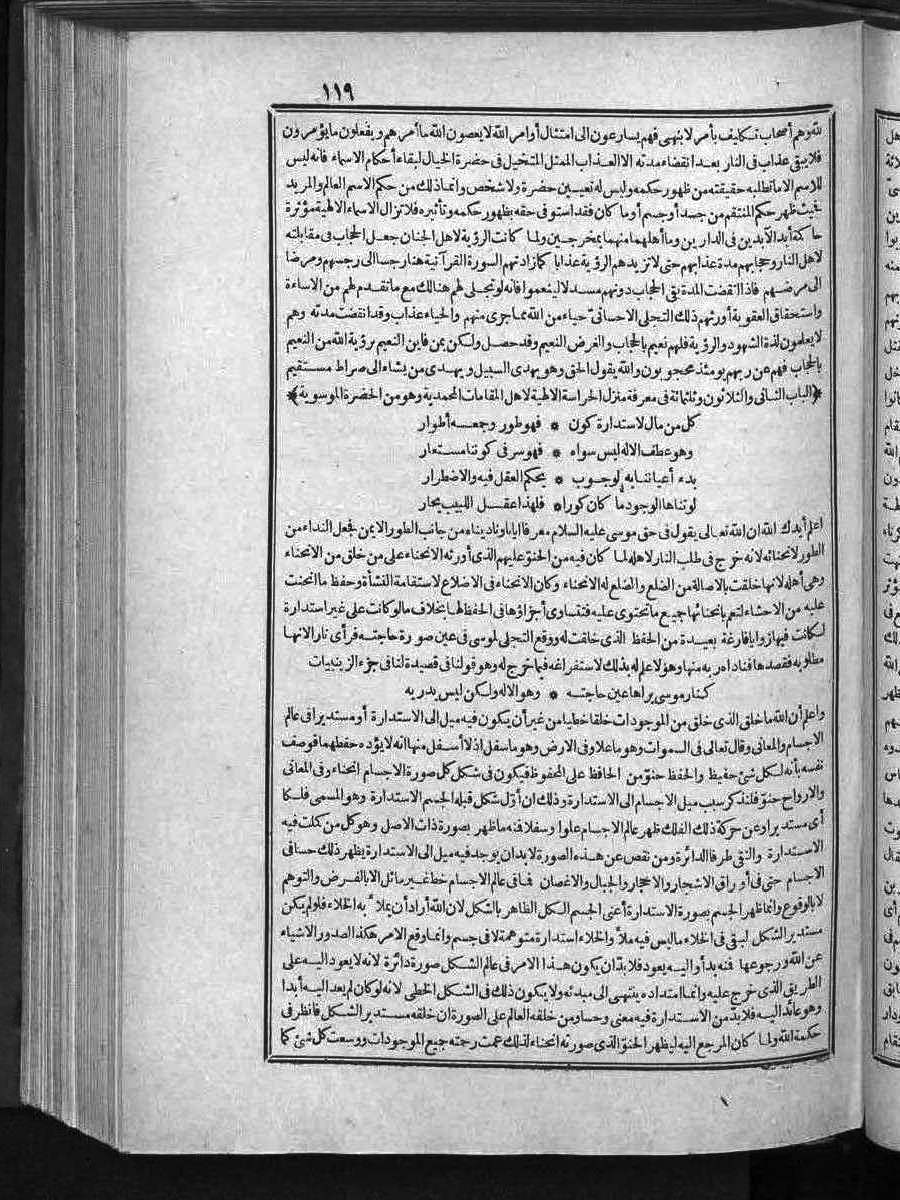 ١١٩
لله وهم أصحاب تكليف بأمر لا بنهى فهم يسارعون الى امتثال أوامر الله لا يعصون الله ما أمرهم ويفعلون ما يؤمرون
فلا يبقى عذاب فى النار بعد انقضاء مدته الا العذاب الممثل المتخيل فى حضرة الخيال لبقاء أحكام الاسماء فانه ليس
للاسم الا ما تطلبه حقيقته من ظهور حكمه وليس له تعيين حضرة ولا شخص وانما ذلك من حكم الاسم العالم والمريد
فحيث ظهر حكم المنتقم من جسد أو جسم أو ما كان فقد استوفى حقه بظهور حكمه وتأثيره فلا تزال الاسماء الالهية مؤثرة
حاكمة أبد الآبدين فى الدارين وما أهلهما منهما بمخرجين ولما كانت الرؤية لاهل الجنان جعل الحجاب فى مقابلته
لاهل النار وحجابهم مدة عذابهم حتى لا تزيدهم الرؤية عذابا كما زادتهم السورة القرآنية هنا رجسا الى رجسهم ومرضا
الى مرضهم فاذا انقضت المدة بقى الحجاب دونهم مسدلا لينعموا فانه لو تجلى لهم هنالك مع ما تقدم لهم من الاساءة
واستحقاق العقوبة أورثهم ذلك التجلى الاحسانى حياء من الله مما جرى منهم والحياء عذاب وقد انقضت مدته وهم
لا يعلمون لذة الشهود والرؤية فلهم نعيم بالحجاب والغرض النعيم وقد حصل ولكن بمن فاين النعيم برؤية الله من النعيم
بالحجاب فهم عن ربهم يومئذ محجوبون والله يقول الحق وهو يهدى السبيل ويهدى من يشاء الى صراط مستقيم
﴿الباب الثانى والثلاثون وثلثمائة فى معرفة منزل الحراسة الالهية لاهل المقامات المحمدية وهو من الحضرة الموسوية﴾
كل من مال لاستدارة كون * فهو طور وجمعه أطوار
وهو عطف الاله ليس سواه * فهو سر فى كوننا مستعار
بدء أعياننا به لوجوب * يحكم العقل فيه والاضطرار
لو تناها الوجود ما كان كورا * فلهذا عقل اللبيب يحار
اعلم أيدك الله ان الله تعالى يقول فى حق موسى عليه السلام معرفا ايانا وناديناه من جانب الطور الايمن فجعل النداء من
الطور لانحنائه لانه خرج فى طلب النار لاهله لما كان فيه من الحنو عليهم الذى أورثه الانحناء على من خلق من الانحناء
وهى أهله لانها خلقت بالاصالة من الضلع والضلع له الانحناء وكان الانحناء فى الاضلاع لاستقامة النشأة وحفظ ما انحنت
عليه من الاحشاء لتعم بانحنائها جميع ما تحتوى عليه فتتساوى أجزاؤها فى الحفظ لها بخلاف ما لو كانت على غير استدارة
لكانت فيها زوايا فارغة بعيدة من الحفظ الذى خلقت له ووقع التجلى لموسى فى عين صورة حاجته فرأى نارا لانها
مطلوبه فقصدها فناداه ربه منها وهو لا علم له بذلك لاستفراغه فيما خرج له وهو قولنا فى قصيدة لنا فى جزء الزينبيات
كنار موسى يراها عين حاجته * وهو الاله ولكن ليس يدريه
واعلم أن الله ما خلق الذى خلق من الموجودات خلقا خطيا من غير أن يكون فيه ميل الى الاستدارة أو مستديرا فى عالم
الاجسام والمعانى وقال تعالى فى السموات وهو ما علا وفى الارض وهو ما سفل اذ لا أسفل منها انه لا يؤده حفظهما فوصف
نفسه بأنه لكل شئ حفيظ والحفظ حنو من الحافظ على المحفوظ فيكون فى شكل كل صورة الاجسام انحناء وفى المعانى
والارواح حنو فلنذكر سبب ميل الاجسام الى الاستدارة وذلك ان أول شكل قبله الجسم الاستدارة وهو المسمى فلكا
أى مستديرا وعن حركة ذلك الفلك ظهر عالم الاجسام علوا وسفلا فنه ما ظهر بصورة ذات الاصل وهو كل من كملت فيه
الاستدارة والتقى طرفا الدائرة ومن نقص عن هذه الصورة لا بد ان يوجد فيه ميل الى الاستدارة يظهر ذلك حسا فى
الاجسام حتى فى أوراق الاشجار والاحجار والجبال والاغصان فما فى عالم الاجسام خط غير مائل الا بالفرض والتوهم
لا بالوقوع وانما ظهر الجسم بصورة الاستدارة أعنى الجسم الكل الظاهر بالشكل لان الله أراد أن يملأ به الخلاء فلو لم يكن
مستدير الشكل لبقى فى الخلاء ما ليس فيه ملأ والخلاء استدارة متوهمة لا فى جسم وانما وقع الامر هكذا الصدور الاشياء
عن الله ورجوعها فنه بدأ واليه يعود فلا بد ان يكون هذا الامر فى عالم الشكل صورة دائرة لانه لا يعود اليه على
الطريق الذى خرج عليه وانما امتداده ينتهى الى مبدئه ولا يكون ذلك فى الشكل الخطى لانه لو كان لم يعد اليه أبدا
وهو عائد اليه فلا بد من الاستدارة فيه معنى وحسا ومن خلقه العالم على الصورة ان خلقه مستدير الشكل فانظر فى
حكمة الله ولما كان المرجع اليه ليظهر الحنو الذى صورته انحناء لذلك عمت رحمته جميع الموجودات ووسعت كل شئ كما